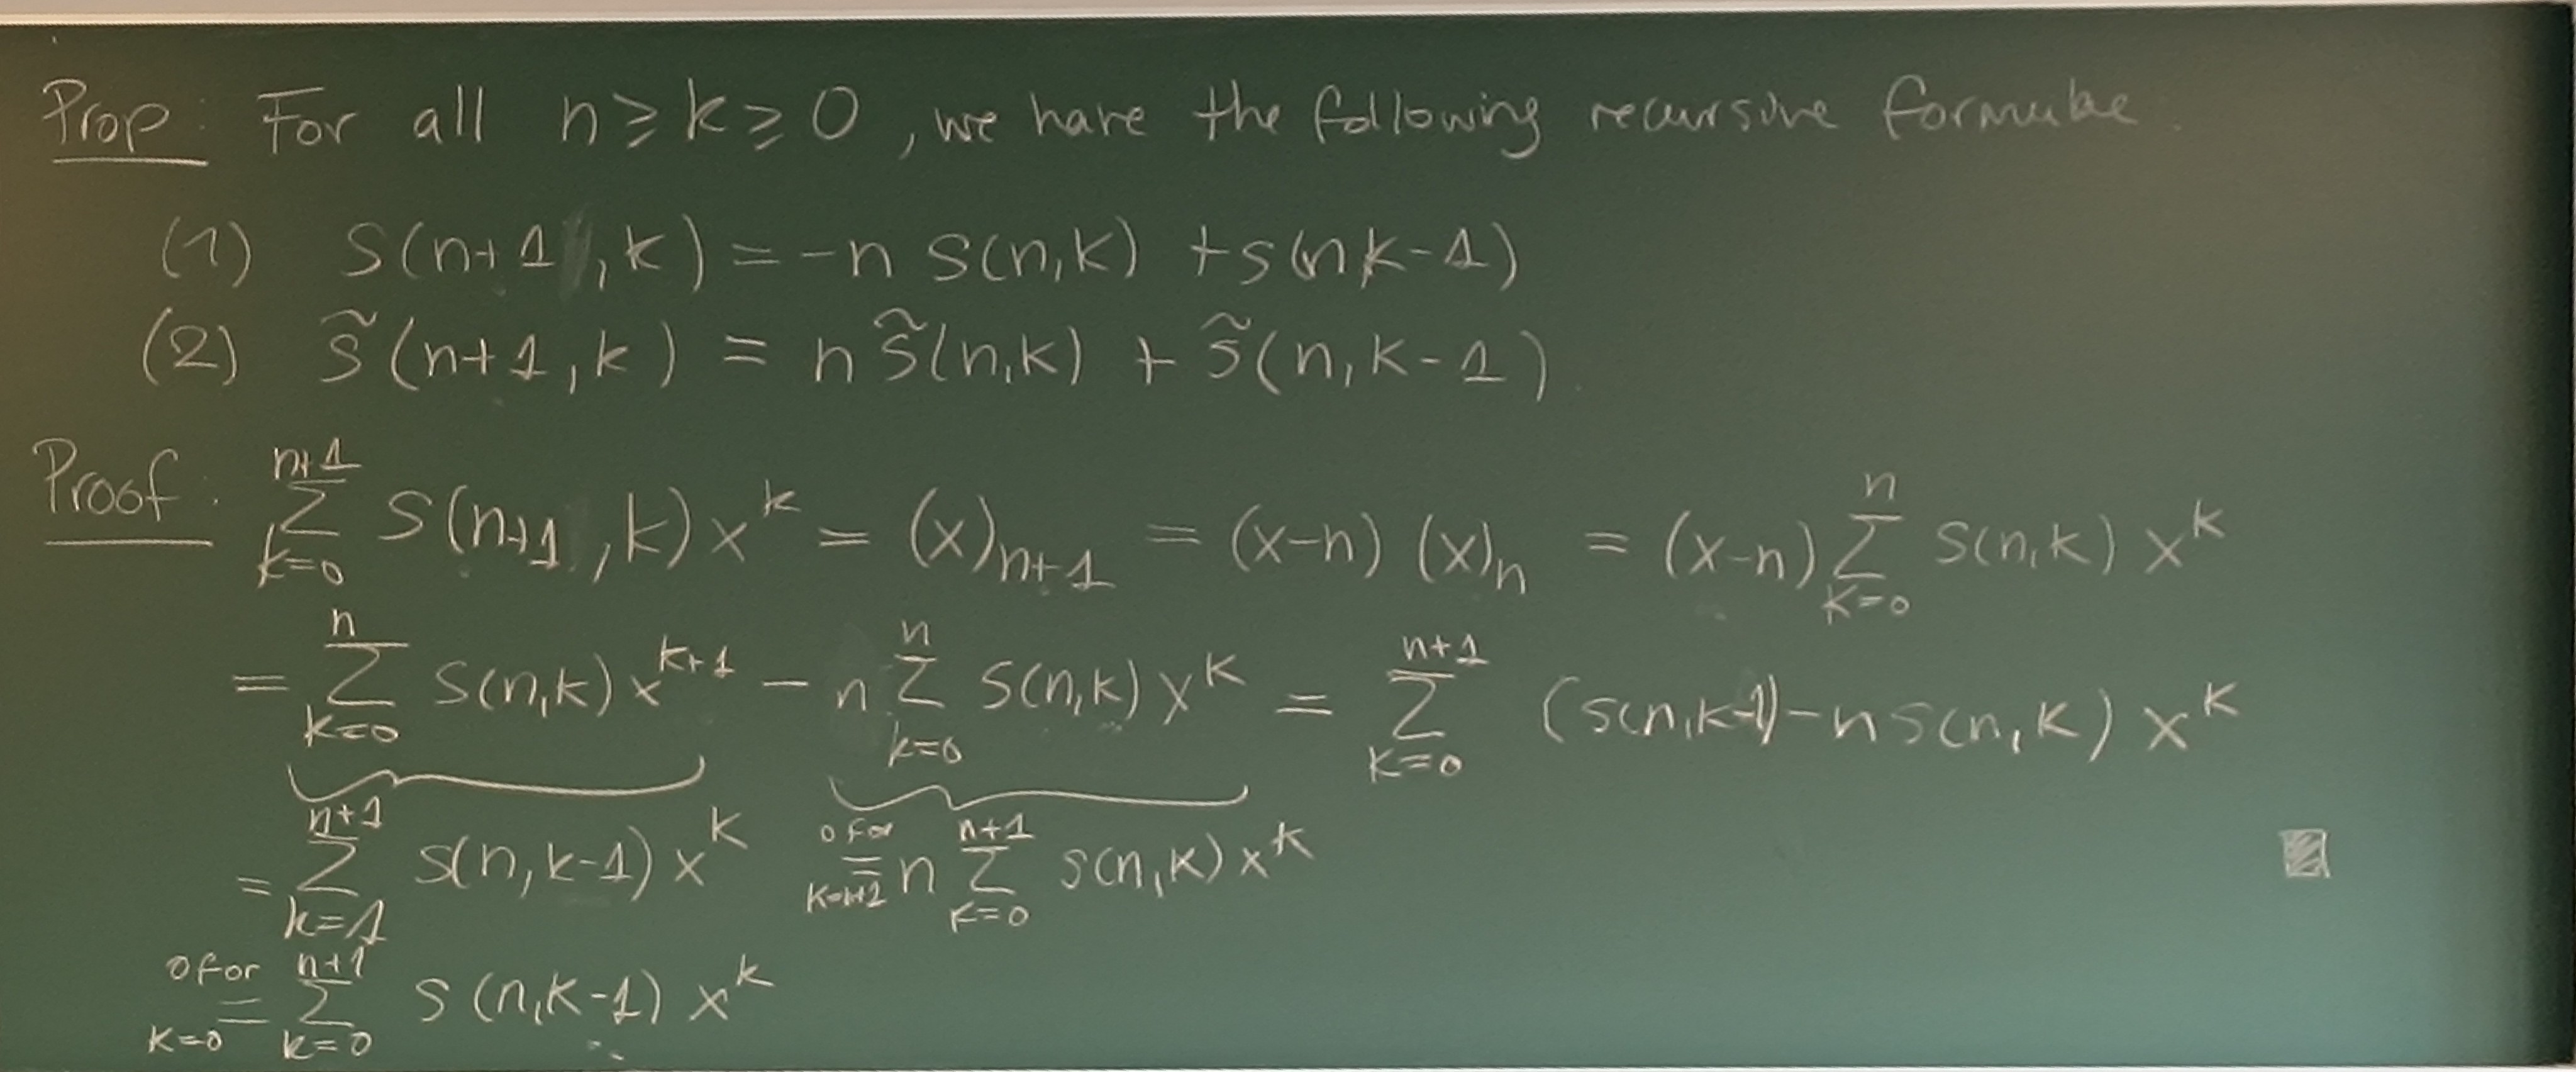 Prop: For all n ≥ k ≥ 0, we have the following recursive formulae.
(1) S(n+1, k) = -n S(n,k) + s(n k-1)
(2) s̃(n+1, k) = n s̃(n,k) + s̃(n, k-1).
Proof: \sum_{k=0}^{n+1} S(n+1, k) x^k = (x)_{n+1} = (x-n) (x)_n = (x-n) \sum_{k=0}^{n} S(n,k) x^k
= \sum_{k=0}^{n} S(n,k) x^{k+1} - n \sum_{k=0}^{n} S(n,k) x^k = \sum_{k=0}^{n+1} (s(n,k-1) - n s(n,k)) x^k
= \sum_{k=1}^{n+1} s(n, k-1) x^k 0 for = n \sum_{k=0}^{n+1} s(n,k) x^k
0 for k=0 = \sum_{k=0}^{n+1} s(n,k-1) x^k